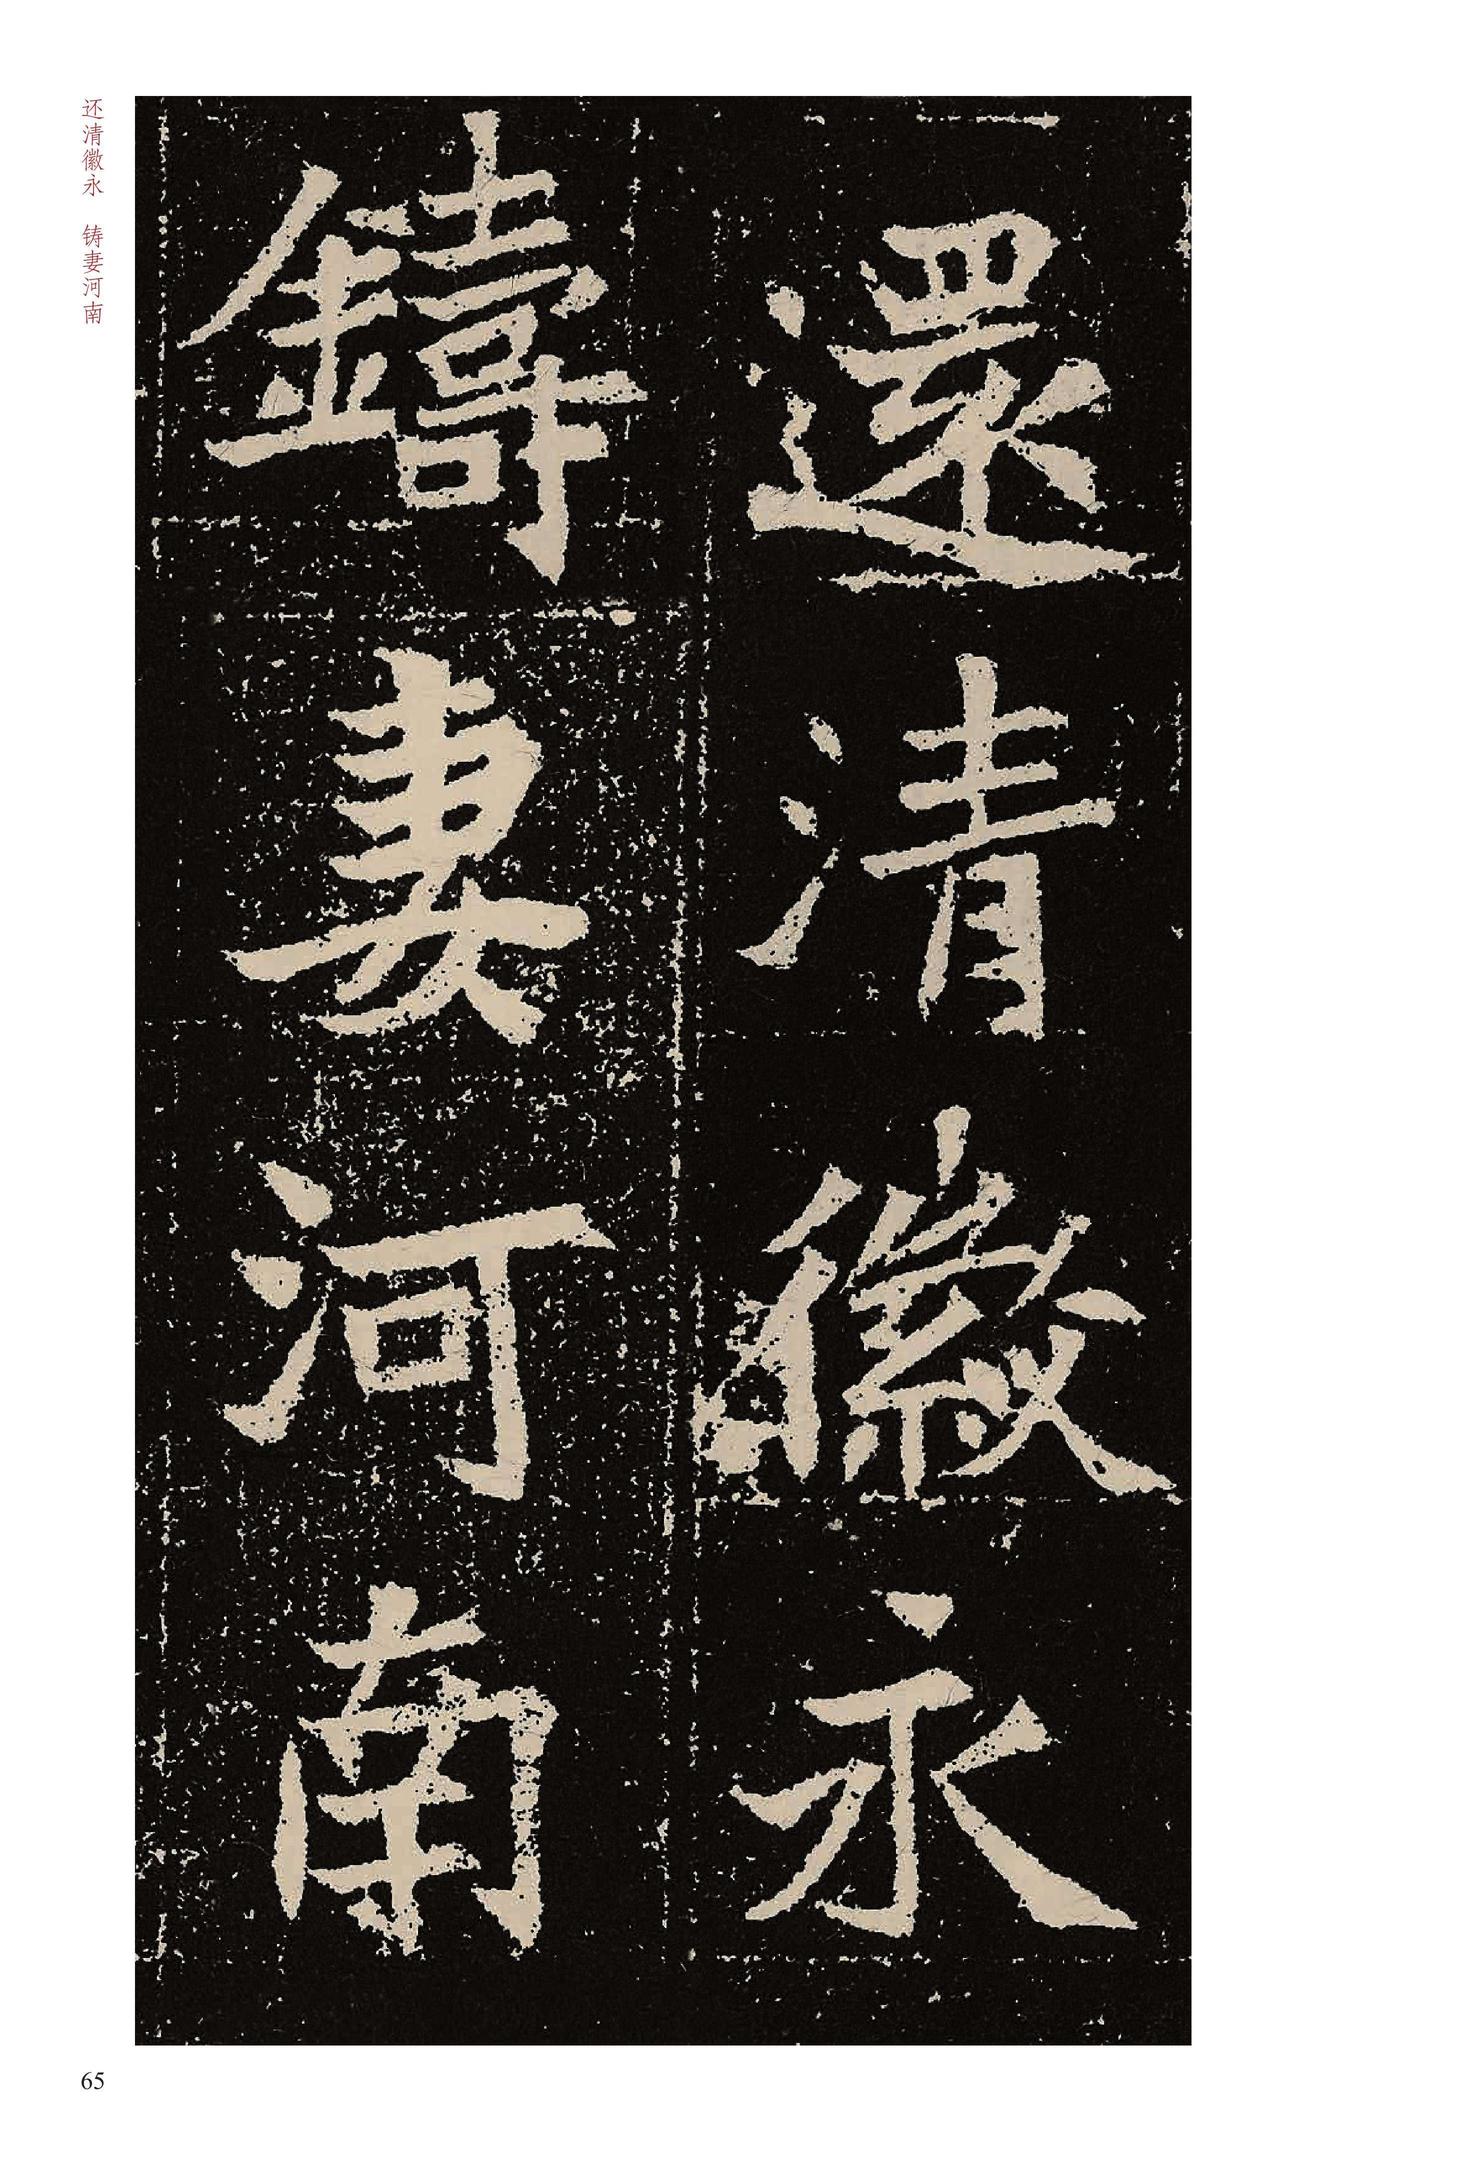 還清徽永
鑄妻河南
还清徽永　铸妻河南
65